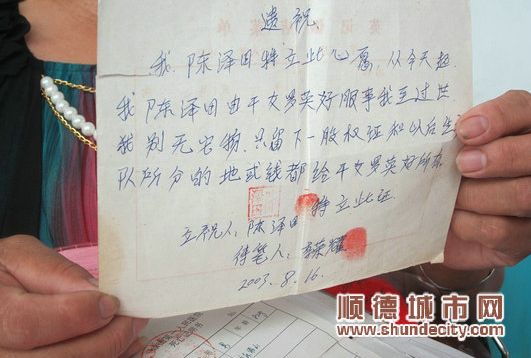 遗祝
我，陈泽田特立此心愿，从今天起
我陈泽田由干女男英好服事我至过世
我别无它物，只留下一股权证和以后生
队所分的地或钱都给干女男英好所有
立祝人：陈泽田 特立此证
待笔人：荣耀
2003.8.16.
顺德城市网
www.shundecity.com